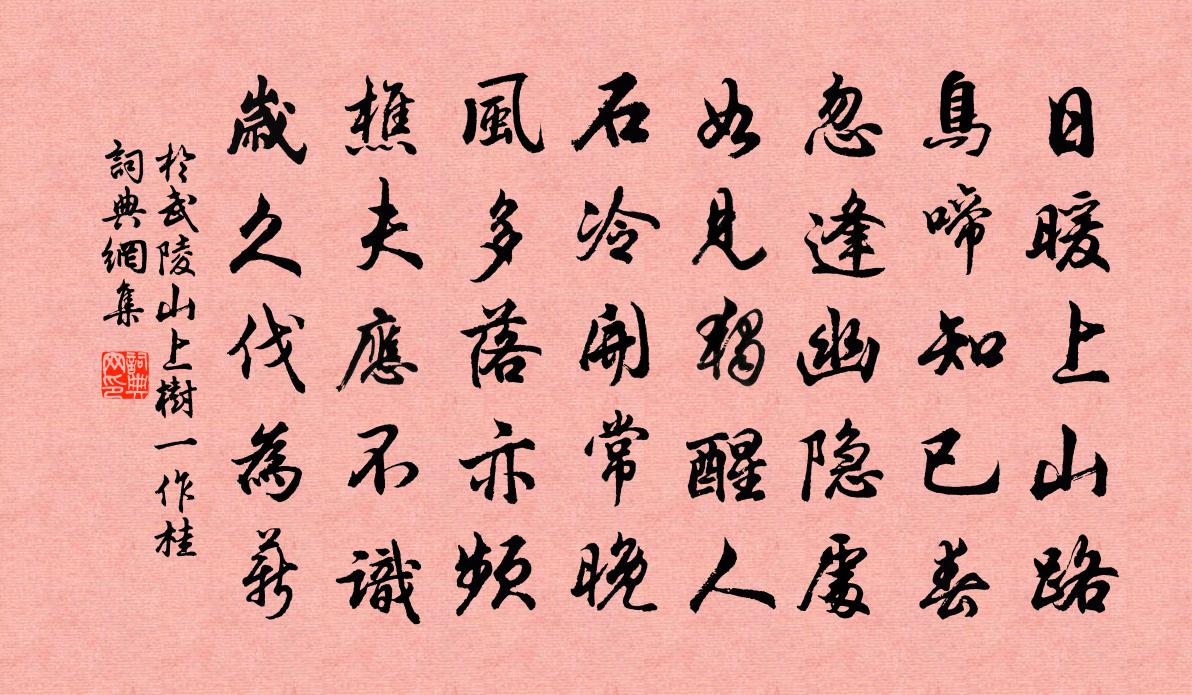 日暖上山路
鳥啼知已春
忽逢幽隐處
如見獨醒人
石冷開常晚
風多落亦頻
樵夫應不識
歲久伐為薪
於武陵山上樹一作桂
詞典網集
詞典網印